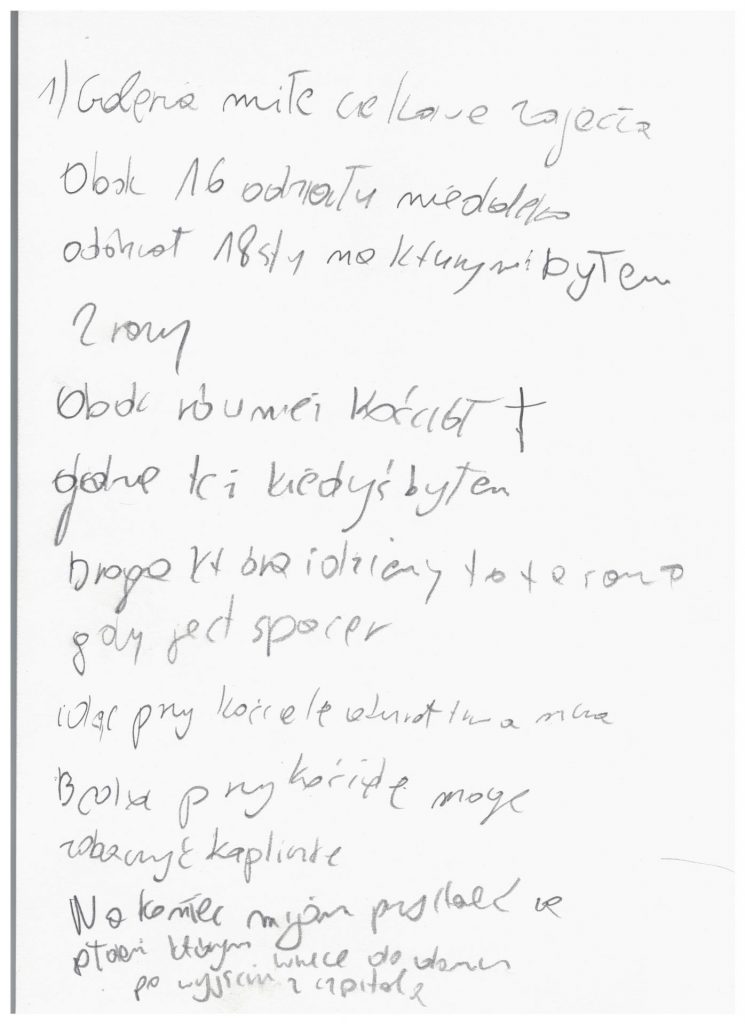 1) Galeria miłe ciekawe zajęcia
Obok 16 oddziału niedaleko
oddział 18sty na kturymi byłem
2 razy
Obok również kościół †
gdzie też kiedyś byłem
Droga którą idziemy to terano
gdy jest spacer
idąc przy kościele
Będąc przy kościele mogę
zobaczyć kapliczkę
Na koniec mijam przystanek
którym wrócę do domu
po wyjściu z czpitala